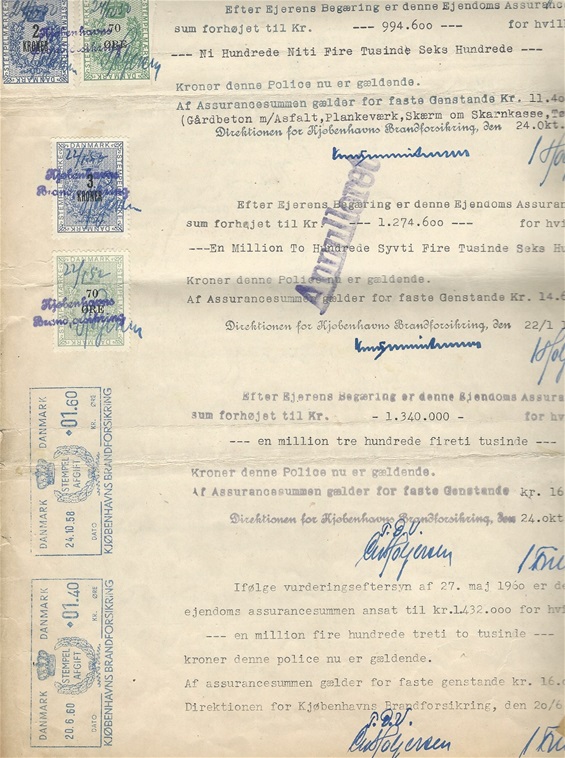 Efter Ejerens Begæring er denne Ejendoms Assuranc
sum forhøjet til Kr. --- 994.600 --- for hvilk
--- Ni Hundrede Niti Fire Tusinde Seks Hundrede ---
Kroner denne Police nu er gældende.
Af Assurancesummen gælder for faste Genstande Kr. 11.40
(Gårdbeton m/Asfalt,Plankeværk,Skærm om Skarnkasse,Tø
Direktionen for Kjøbenhavns Brandforsikring, den 24.Okt.
2 KRONER
70 ØRE
DANMARK
Kjøbenhavns
DANMARK
3 KRONER
Kjøbenhavns
Brandforsikring
22/1 52
70 ØRE
Kjøbenhavns
Brandforsikring
Annulleret
Efter Ejerens Begæring er denne Ejendoms Assuran
sum forhøjet til Kr --- 1.274.600 --- for hv
---En Million To Hundrede Syvti Fire Tusinde Seks Hu
Kroner denne Police nu er gældende.
Af Assurancesummen gælder for faste Genstande Kr. 14.6
Direktionen for Kjøbenhavns Brandforsikring, den 22/1 1
Efter Ejerens Begæring er denne Ejendoms Assura
sum forhøjet til Kr. - 1.340.000 - for hv
--- en million tre hundrede fireti tusinde ---
Kroner denne Police nu er gældende.
Af Assurancesummen gælder for faste Genstande kr. 16
Direktionen for Kjøbenhavns Brandforsikring, den 24.okt
T.D.V.
DANMARK DANMARK
24.10.58 STEMPEL AFGIFT 01.60
DATO KR. ØRE
KJØBENHAVNS BRANDFORSIKRING
Ifølge vurderingseftersyn af 27. maj 1960 er de
ejendoms assurancesummen ansat til kr.1.432.000 for hvi
--- en million fire hundrede treti to tusinde ---
kroner denne police nu er gældende.
Af assurancesummen gælder for faste genstande kr. 16.
Direktionen for Kjøbenhavns Brandforsikring, den 20/6
T.D.V.
DANMARK DANMARK
20.6.60 STEMPEL AFGIFT 01.40
DATO KR. ØRE
KJØBENHAVNS BRANDFORSIKRING